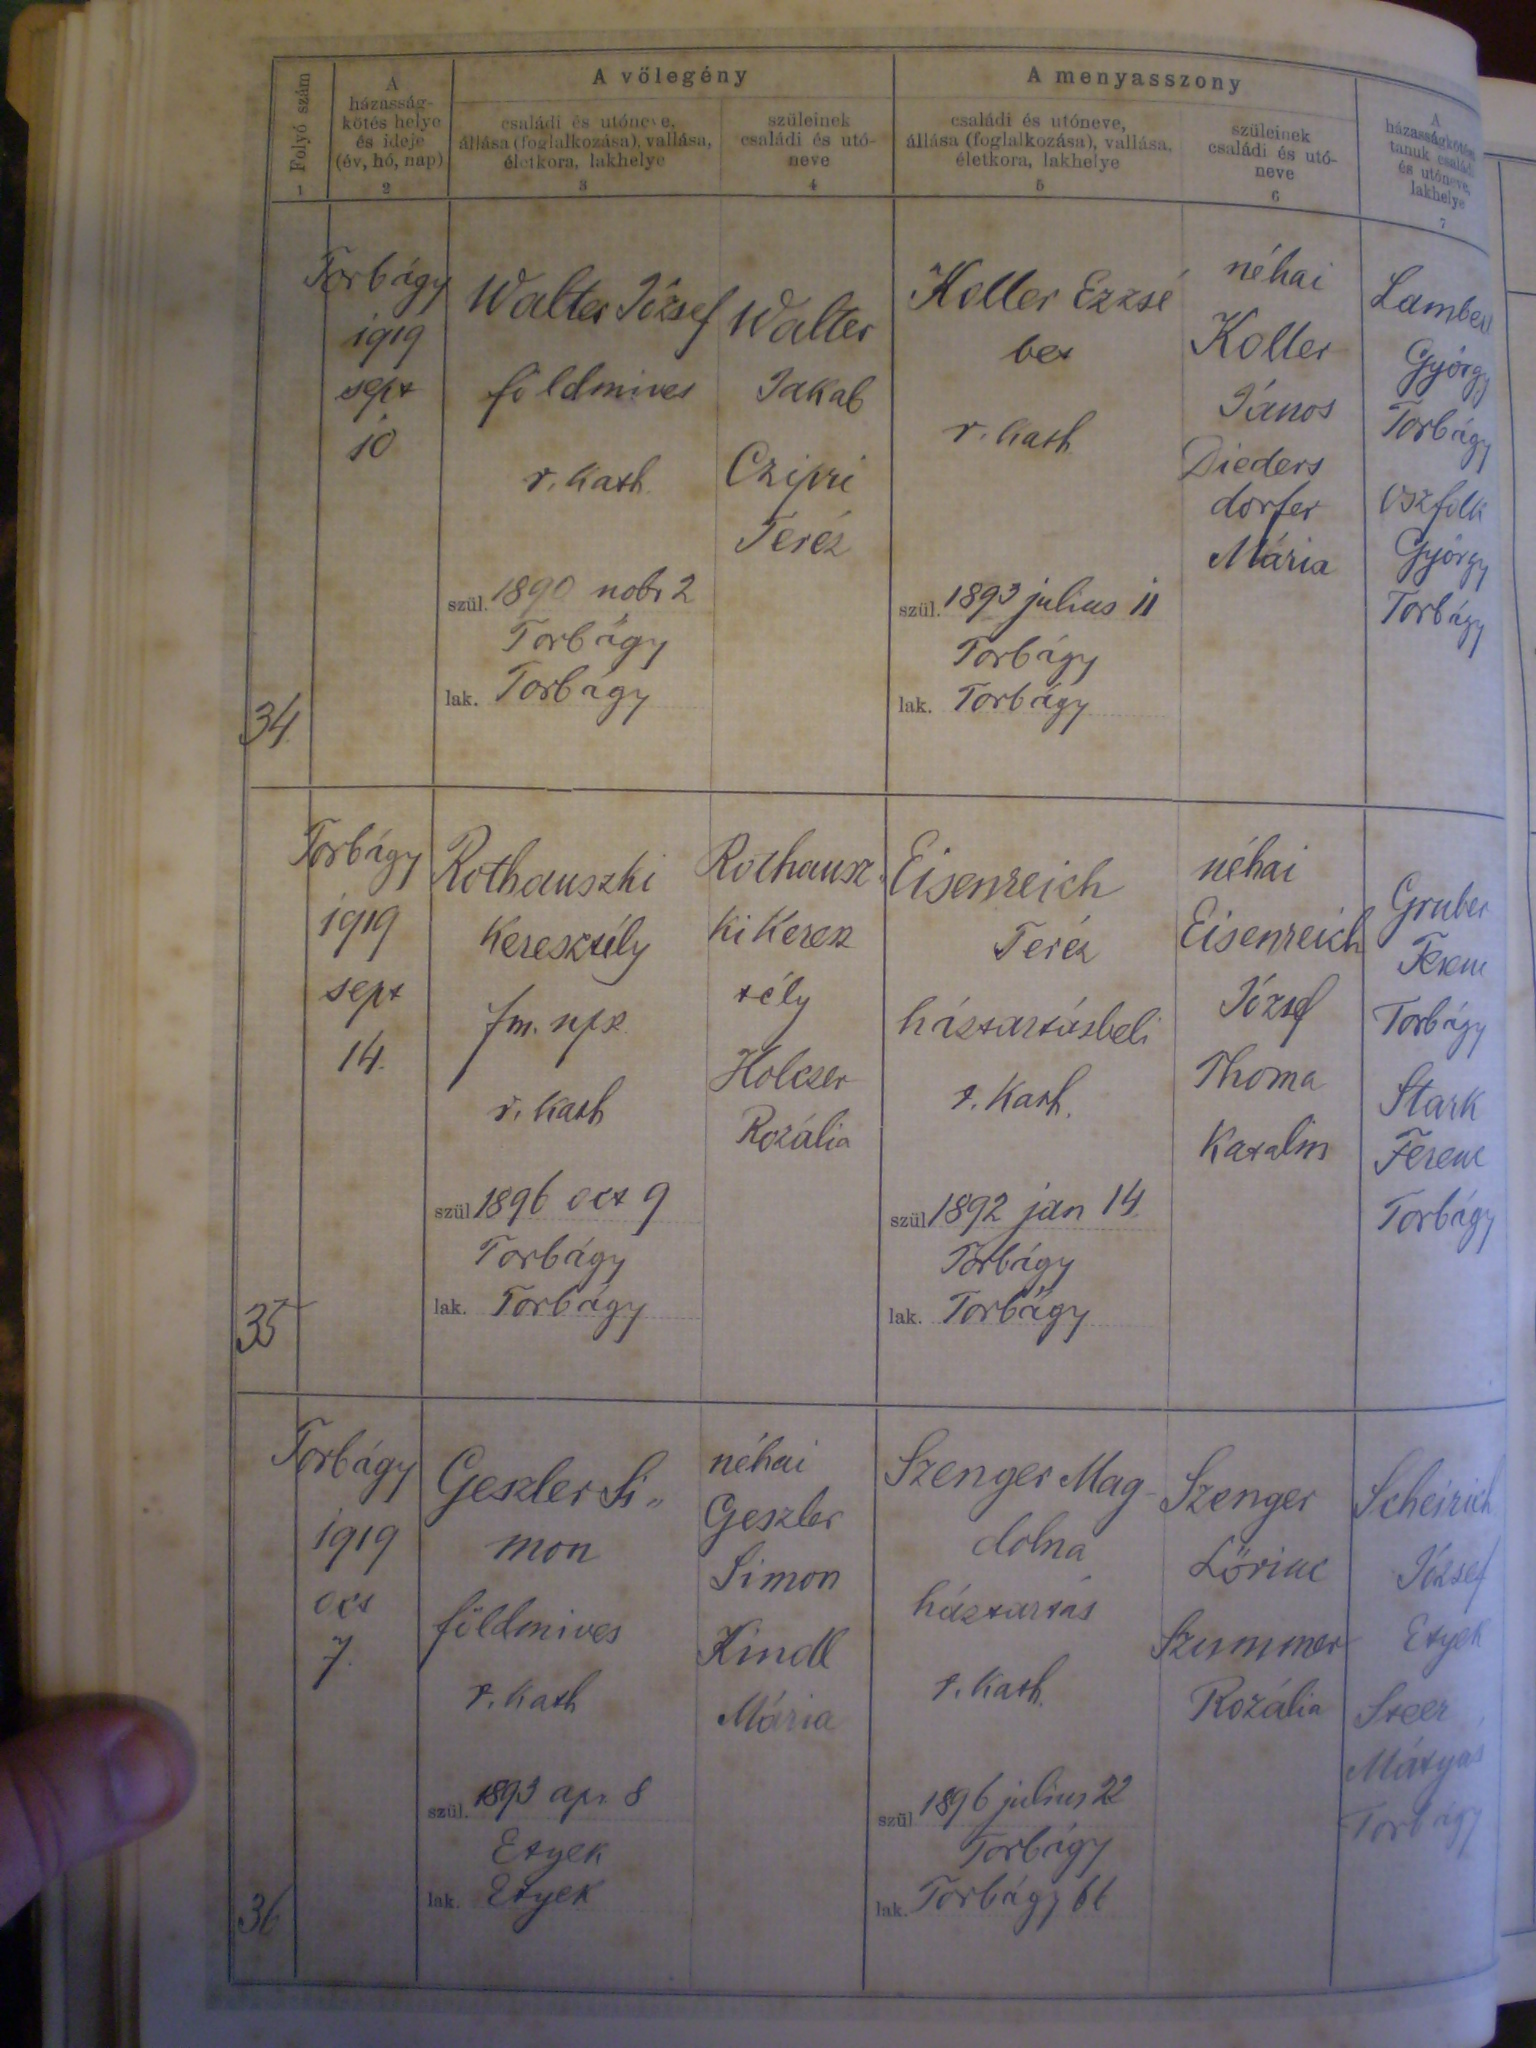 A vőlegény
A menyasszony
Folyó szám
1
A
házasság-
kötés helye
és ideje
(év, hó, nap)
2
családi és utóneve,
állása (foglalkozása), vallása,
életkora, lakhelye
3
szüleinek
családi és utó-
neve
4
családi és utóneve,
állása (foglalkozása), vallása,
életkora, lakhelye
5
szüleinek
családi és utó-
neve
6
A
házasságkötési
tanuk családi
és utóneve,
lakhelye
7
34.
Torbágy
1919
sept
10
Walter József
földmives
r. kath.
szül. 1890 nobr 2
Torbágy
lak. Torbágy
Walter
Jakab
Czipri
Teréz
Koller Erzsé
bet
r. kath
szül. 1893 julius 11
Torbágy
lak. Torbágy
néhai
Koller
János
Dieders
dorfer
Mária
Lambert
György
Torbágy
Oszfolk
György
Torbágy
35
Torbágy
1919
sept
14.
Rothauszki
Keresztély
fm. nps.
r. kath
szül 1896 oct 9
Torbágy
lak. Torbágy
Rothausz
ki Keresz
tély
Holczer
Rozália
Eisenreich
Teréz
háztartásbeli
r. kath.
szül 1892 jan 14
Torbágy
lak. Torbágy
néhai
Eisenreich
József
Thoma
Katalin
Gruber
Ferenc
Torbágy
Stark
Ferenc
Torbágy
36
Torbágy
1919
oct
7.
Geszler Si„
mon
földmives
r. kath
szül. 1893 apr. 8
Etyek
lak. Etyek
néhai
Geszler
Simon
Kindl
Mária
Szenger Mag-
dolna
háztartás
r. kath.
szül 1896 julius 22
Torbágy
lak. Torbágy 66
Szenger
Lőrinc
Szummer
Rozália
Scheirich
József
Etyek
Steer
Mátyás
Torbágy